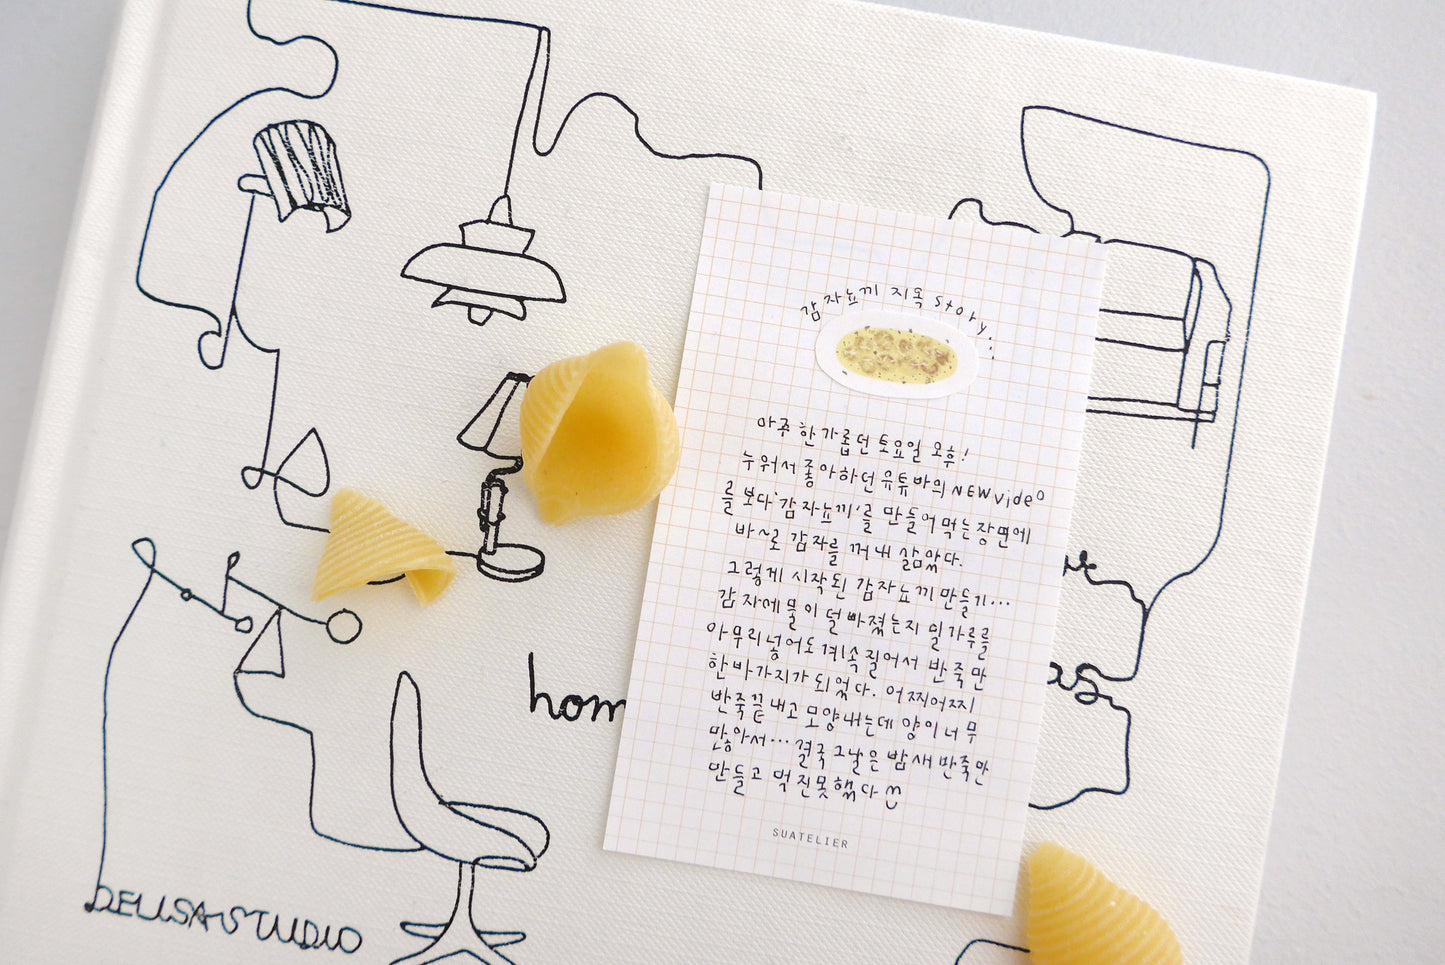 감자뇨끼 지옥 story...
아주 한가롭던 토요일 오후!
누워서 좋아하던 유튜바의 NEW video
를 보다 '감자뇨끼'를 만들어 먹는 장면에
바~로 감자를 꺼내 삶았다.
그렇게 시작된 감자뇨끼 만들기...
감자에 물이 덜 빠졌는지 밀가루를
아무리 넣어도 계속 질어서 반죽만
한바가지가 되었다. 어찌어찌
반죽 끝내고 모양내는데 양이 너무
많아서... 결국 그날은 밤새 반죽만
만들고 먹진 못했다
SUATELIER
hom
as
DELISA STUDIO